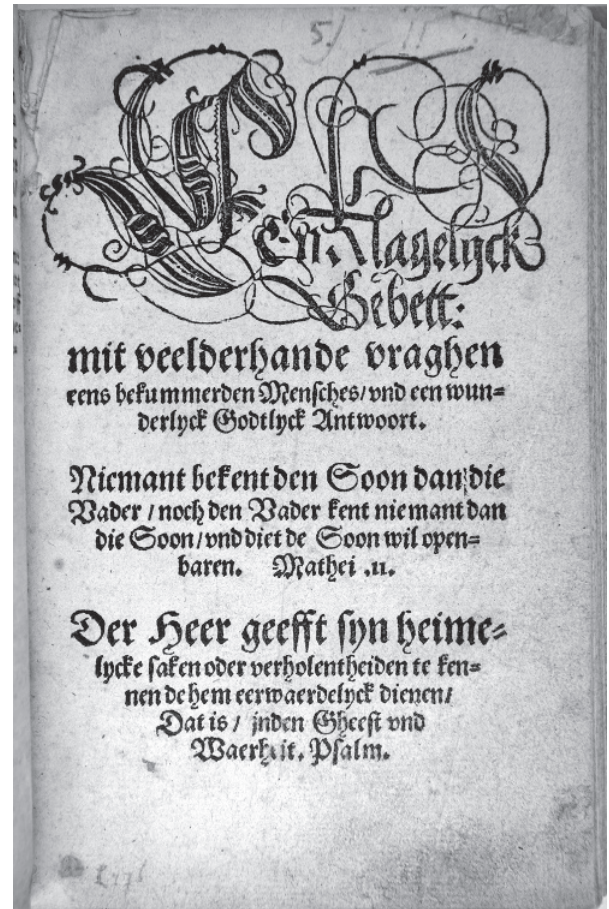 Een Klagelyck
Gebett:
mit veelderhande vraghen
eens bekummerden Mensches/vnd een wun=
derlyck Godtlyck Antwoort.
Niemant bekent den Soon dan die
Vader / noch den Vader kent niemant dan
die Soon/vnd diet de Soon wil open=
baren. Mathei .11.
Der Heer geefft syn heime=
lycke saken oder verholentheiden te ken=
nen de hem eerwaerdelyck dienen/
Dat is / jnden Gheest vnd
Waerheit. Psalm.